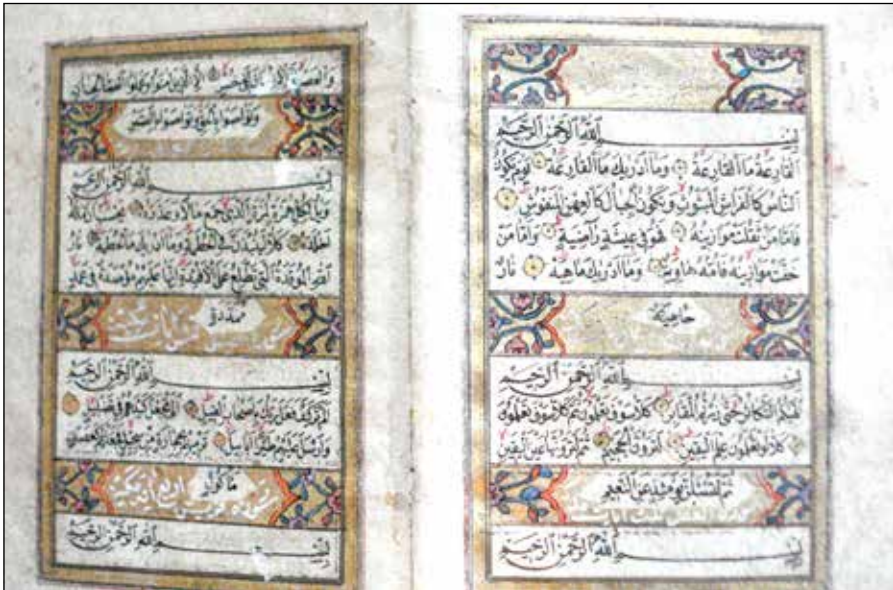 بسم الله الرحمن الرحيم
القارعة ما القارعة وما ادريك ما القارعة يوم يكون
الناس كالفراش المبثوث وتكون الجبال كالعهن المنفوش
فاما من ثقلت موازينه فهو في عيشة راضية واما من
خفت موازينه فامه هاوية وما ادريك ماهيه نار
حامية
بسم الله الرحمن الرحيم
الهيكم التكاثر حتى زرتم المقابر كلا سوف تعلمون ثم كلا سوف تعلمون
كلا لو تعلمون علم اليقين لترون الجحيم ثم لترونها عين اليقين
ثم لتسئلن يومئذ عن النعيم
بسم الله الرحمن الرحيم
والعصر ان الانسان لفي خسر الا الذين امنوا وعملوا الصالحات
وتواصوا بالحق وتواصوا بالصبر
بسم الله الرحمن الرحيم
ويل لكل همزة لمزة الذي جمع مالا وعدده يحسب ان ماله
اخلده كلا لينبذن في الحطمة وما ادريك ما الحطمة نار
الله الموقدة التي تطلع على الافئدة انها عليهم مؤصدة في عمد
ممددة
بسم الله الرحمن الرحيم
الم تر كيف فعل ربك باصحاب الفيل الم يجعل كيدهم في تضليل
وارسل عليهم طيرا ابابيل ترميهم بحجارة من سجيل فجعلهم كعصف
ماكول
بسم الله الرحمن الرحيم